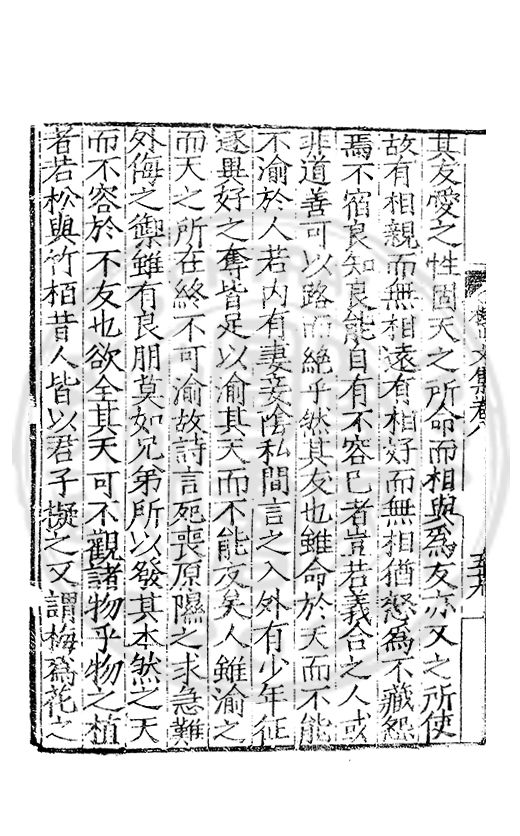 其友愛之性固天之所命而相與為友亦天之所使
故有相親而無相遠有相好而無相猶怒為不藏怨
焉不宿良知良能自有不容已者豈若義合之人或
非道善可以路而絶乎然其友也雖命於天而不能
不渝於人若内有妻妾陰私間言之入外有少年征
逐異好之奪皆足以渝其天而不能友矣人雖渝之
而天之所在終不可渝故詩言死喪原隰之求急難
外侮之禦雖有良朋莫如兄弟所以發其本然之天
而不容於不友也欲全其天可不觀諸物乎物之植
者若松與竹栢昔人皆以君子擬之又謂梅為花之
文集卷八